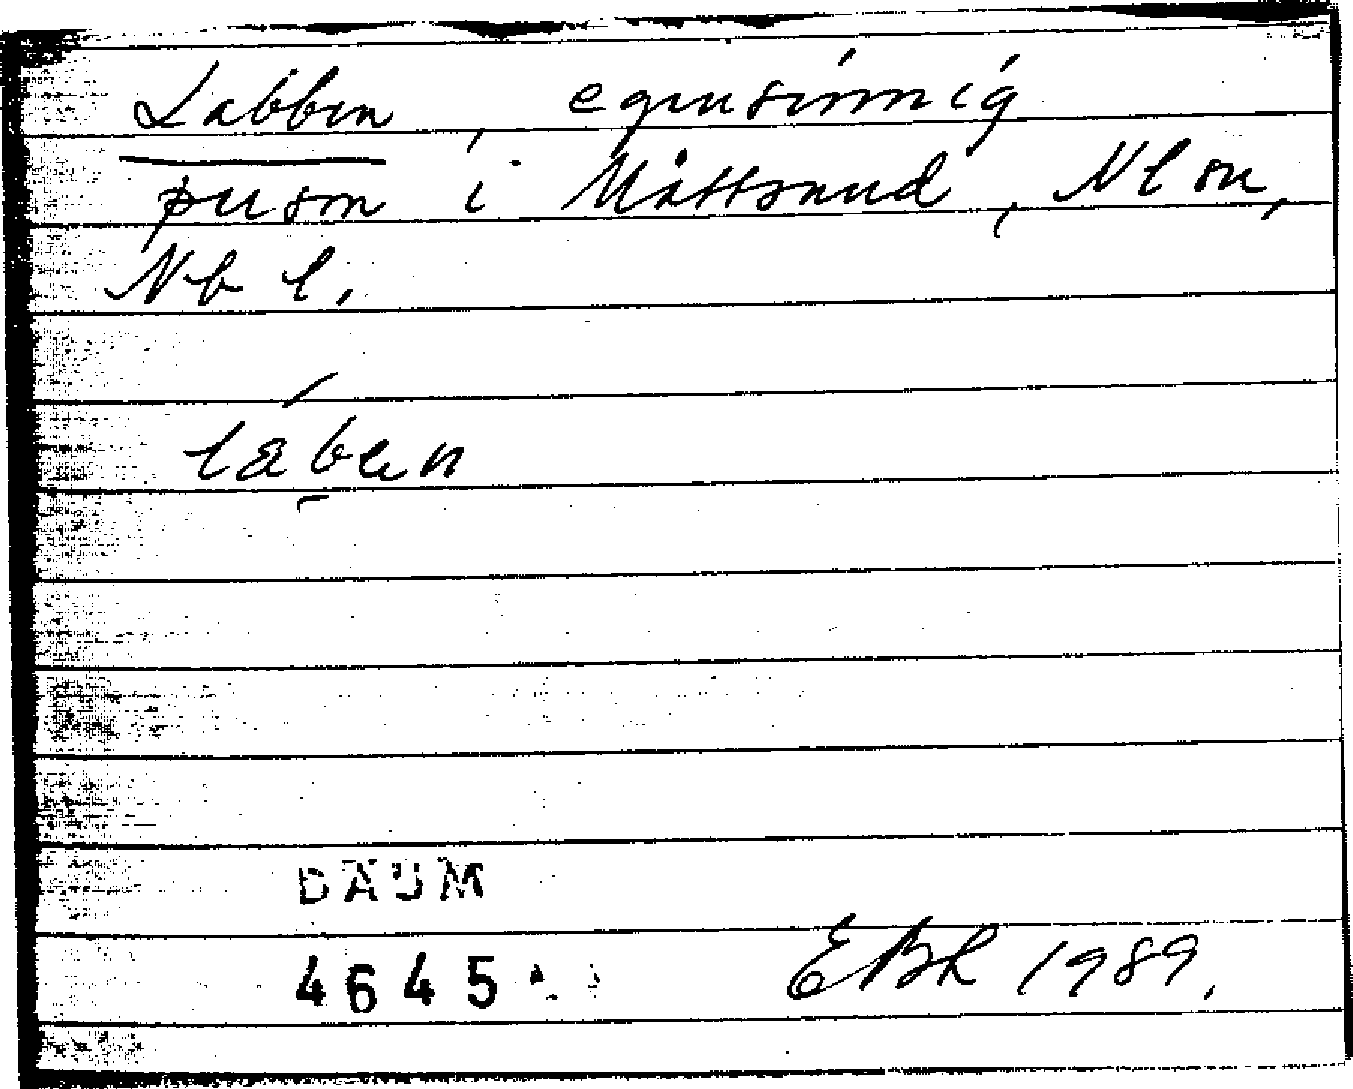 Labben, egensinnig
person i Måttsund, Nl sn,
Nb l.
laben
DAUM
4645
EBh 1989.